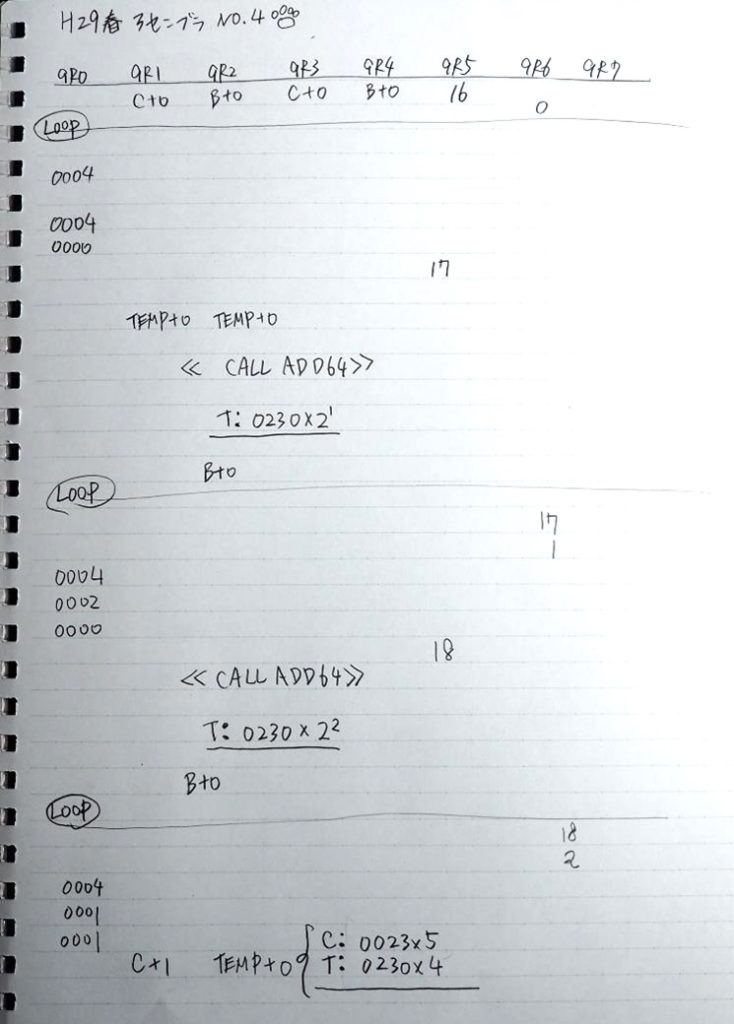 H29春 アセンブラ NO.4
GR0 GR1 GR2 GR3 GR4 GR5 GR6 GR7
C+0 B+0 C+0 B+0 16 0
LOOP
0004
0004
0000
17
TEMP+0 TEMP+0
≪ CALL ADD64≫
T: 0230×2¹
B+0
LOOP
17
1
0004
0002
0000
18
≪ CALL ADD64≫
T: 0230×2²
B+0
LOOP
18
2
0004
0001
0001
C+1 TEMP+0
C: 0023×5
T: 0230×4